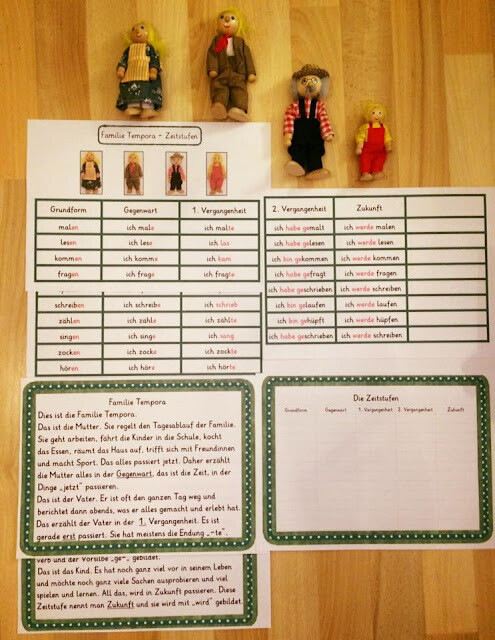 Familie Tempora - Zeitstufen
Grundform Gegenwart 1. Vergangenheit
malen ich male ich malte
lesen ich lese ich las
kommen ich komme ich kam
fragen ich frage ich fragte
schreiben ich schreibe ich schrieb
zählen ich zähle ich zählte
singen ich singe ich sang
zocken ich zocke ich zockte
hören ich höre ich hörte
2. Vergangenheit Zukunft
ich habe gemalt ich werde malen
ich habe gelesen ich werde lesen
ich bin gekommen ich werde kommen
ich habe gefragt ich werde fragen
ich habe geschrieben ich werde schreiben
ich bin gelaufen ich werde laufen
ich bin gehüpft ich werde hüpfen
ich habe geschrieben ich werde schreiben
Familie Tempora
Dies ist die Familie Tempora.
Das ist die Mutter. Sie regelt den Tagesablauf der Familie.
Sie geht arbeiten, fährt die Kinder in die Schule, kocht
das Essen, räumt das Haus auf, trifft sich mit Freundinnen
und macht Sport. Das alles passiert jetzt. Daher erzählt
die Mutter alles in der Gegenwart, das ist die Zeit, in der
Dinge „jetzt" passieren.
Das ist der Vater. Er ist oft den ganzen Tag weg und
berichtet dann abends, was er alles gemacht und erlebt hat.
Das erzählt der Vater in der 1. Vergangenheit. Es ist
gerade erst passiert. Sie hat meistens die Endung „-te".
verb und der Vorsilbe „ge-" gebildet.
Das ist das Kind. Es hat noch ganz viel vor in seinem Leben
und möchte noch ganz viele Sachen ausprobieren und viel
spielen und lernen. All das, wird in Zukunft passieren. Diese
Zeitstufe nennt man Zukunft und sie wird mit „wird" gebildet.
Die Zeitstufen
Grundform Gegenwart 1. Vergangenheit 2. Vergangenheit Zukunft